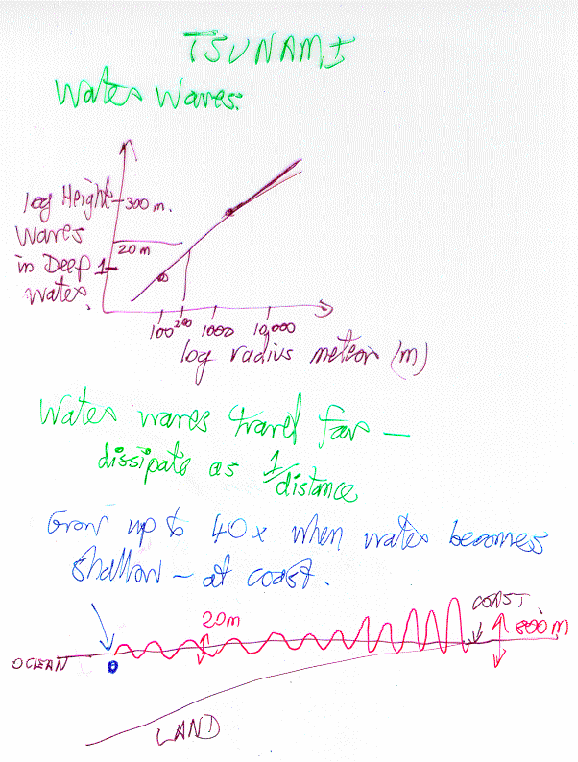 TSUNAMI
Water Waves.
log Height
waves
in Deep
water.
300 m.
20 m
1
100 200 1000 10,000
log radius meteor (m)
Water waves travel far —
dissipate as 1/distance
Grow up to 40x when water becomes
shallow — at coast.
20m
COAST.
800 m
OCEAN
LAND